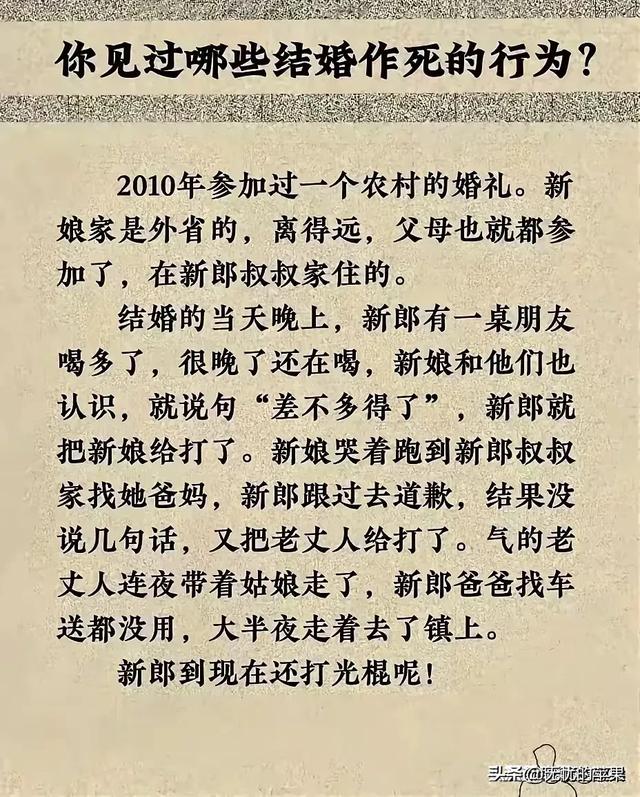 你见过哪些结婚作死的行为？
2010年参加过一个农村的婚礼。新
娘家是外省的，离得远，父母也就都参
加了，在新郎叔叔家住的。
结婚的当天晚上，新郎有一桌朋友
喝多了，很晚了还在喝，新娘和他们也
认识，就说句“差不多得了”，新郎就
把新娘给打了。新娘哭着跑到新郎叔叔
家找她爸妈，新郎跟过去道歉，结果没
说几句话，又把老丈人给打了。气的老
丈人连夜带着姑娘走了，新郎爸爸找车
送都没用，大半夜走着去了镇上。
新郎到现在还打光棍呢！
头条@无忧的苹果